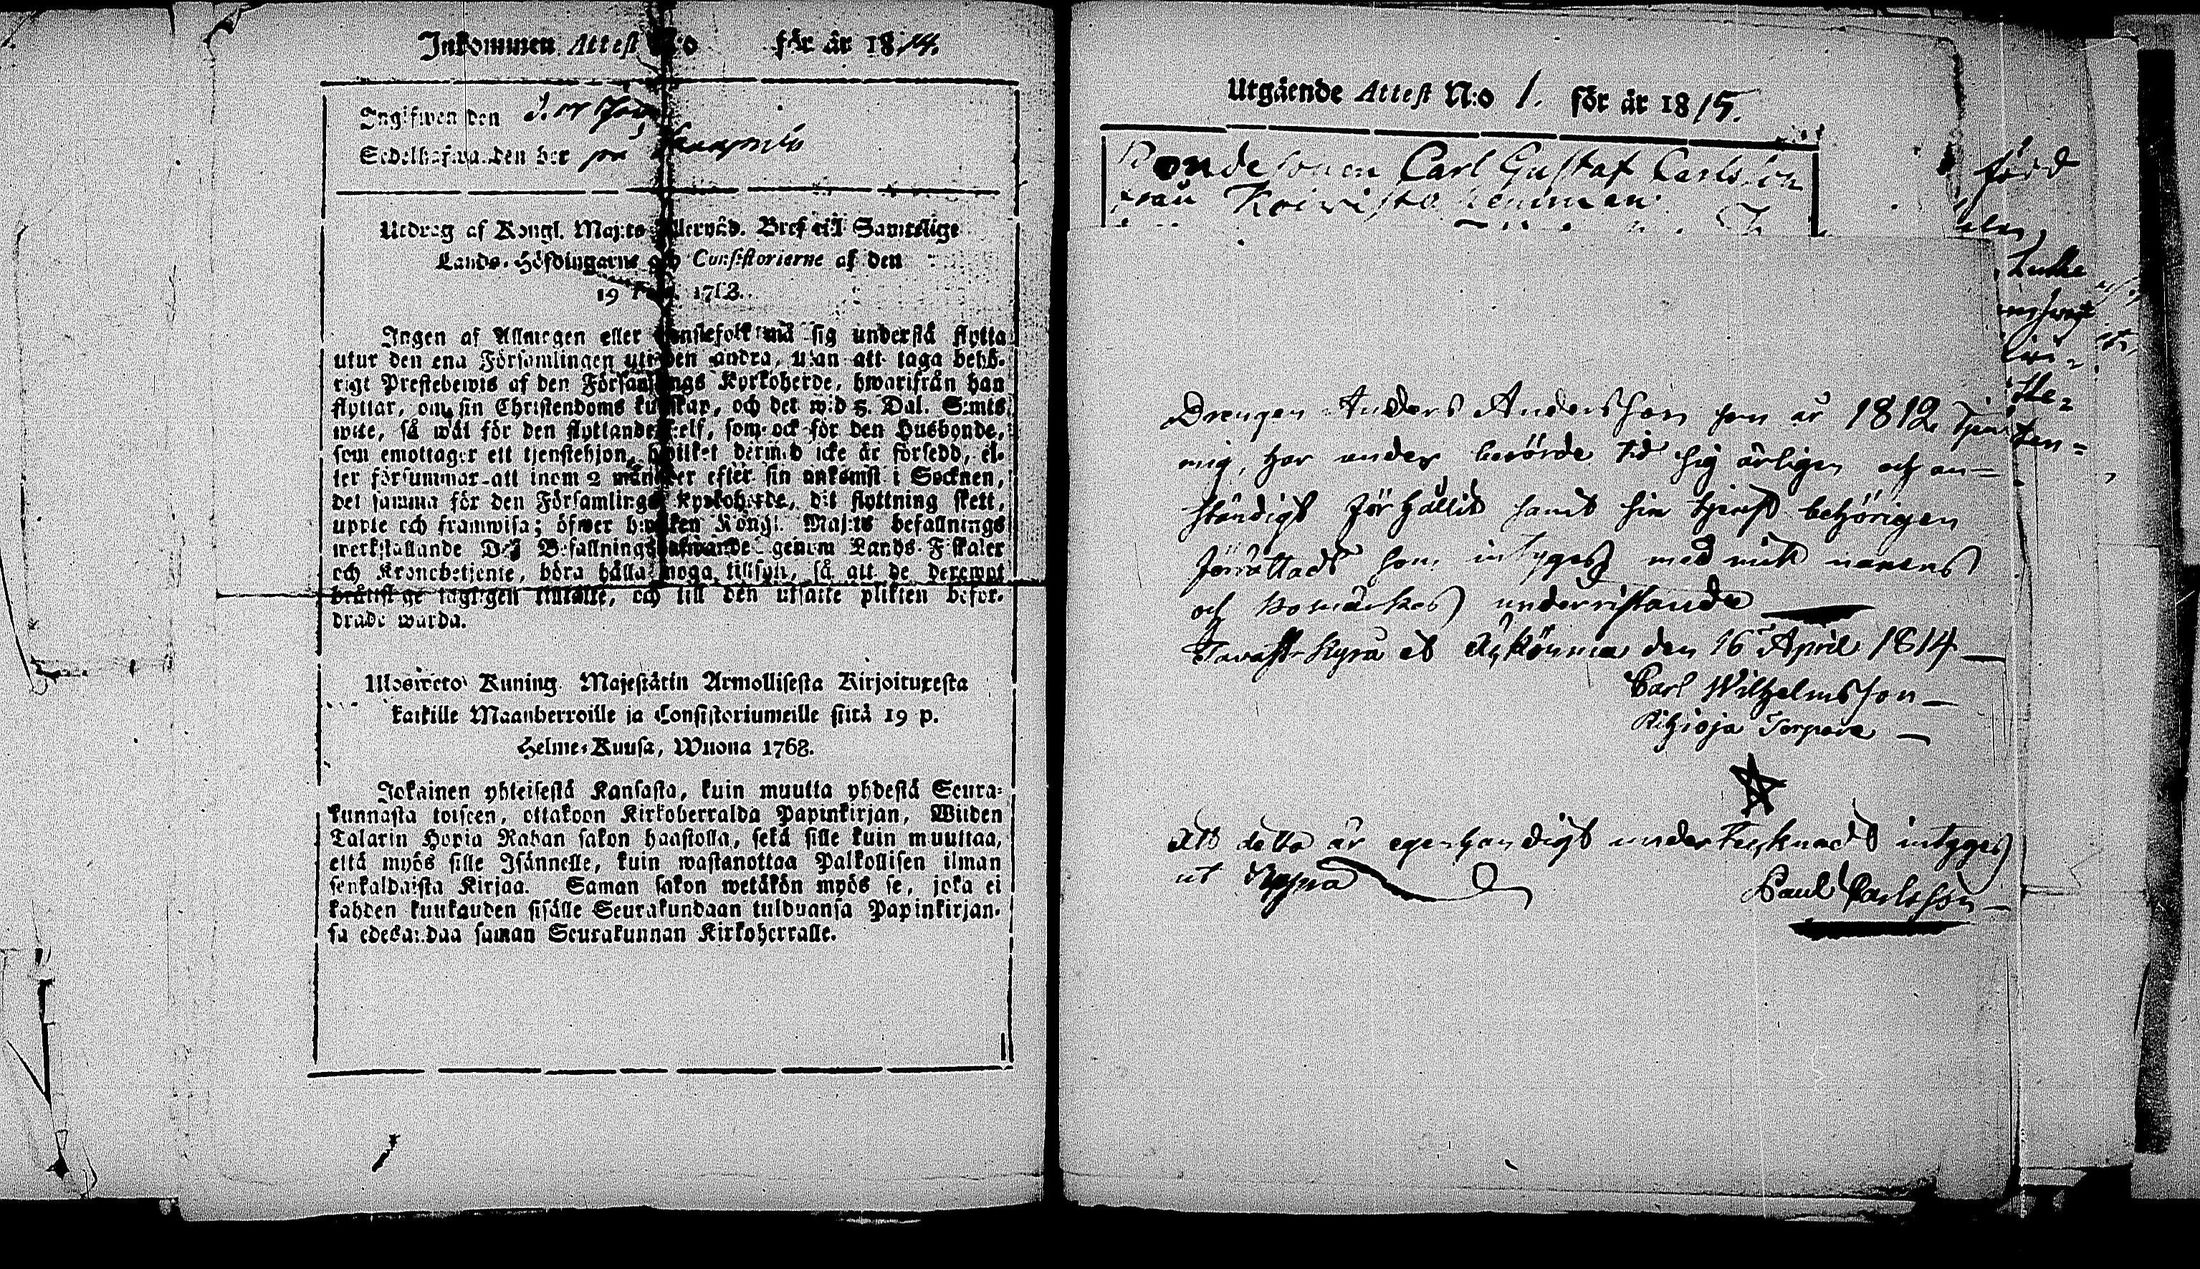 Inkommen Attest N:o för år 1814.
Ingifwen den
Sedelhafwanden bor på
Utdrag af Kongl. Maj:ts Allernåd. Bref till Samtelige
Lands-Höfdingarne och Consistorierne af den
19 1768.
Ingen af Allmogen eller tjenstefolk må sig understå flytta
utur den ena Församlingen uti den andra, utan att taga behö-
rigt Prestebewis af den Församlings Kyrkoherde, hwarifrån han
flyttar, om sin Christendoms kunskap, och det wid 5. Dal. S:mts
wite, så wäl för den flyttande self, som ock för den Husbonde,
som emottager ett tjenstehjon, hwilket dermed icke är försedd, el-
ler försummar att inom 2 månader efter sin ankomst i Socknen,
det samma för den Församlings Kyrkoherde, dit flyttning skett,
uppte och framwisa; öfwer hwilken Kongl. Maj:ts befallnings
werkställande Des Befallningshafwande genom Lands-Fiskaler
och Kronobetjente, böra hålla noga tillsyn, så att de deremot
bråttslige lagligen tilltalte, och till den utsatte plikten befor-
drade warda.
Ulosweto Kuning. Majestätin Armollisesta Kirjoituxesta
kaikille Maanherroille ja Consistoriumeille siitä 19 p.
Helme-Kuusa, Wuona 1768.
Jokainen yhteisestä Kansasta, kuin muutta yhdestä Seura-
kunnasta toiseen, ottakoon Kirkoherralda Papinkirjan, Wiiden
Talarin Hopia Rahan sakon haastolla, sekä sille kuin muuttaa,
että myös sille Isännelle, kuin wastanottaa Palkollisen ilman
senkaldaista Kirjaa. Saman sakon wetäkön myös se, joka ei
kahden kuukauden sisälle Seurakundaan tulduansa Papinkirjan-
sa edesandaa saman Seurakunnan Kirkoherralle.
Utgående Attest N:o 1. för år 1815.
Bondesonen Carl Gustaf Carlsson
från Koivisto hemman
Drengen Anders Andersson som år 1812 tjent
mig, har under berörde tid sig ärligen och an-
ständigt förhållit samt sin tjenst behörigen
förrättadt som intygges med mitt namns
och bomärkes undersittande
Tavast-Kyro et Kyrkönma den 16 April 1814
Carl Wilhelmsson
Torpare
Att detta är egenhändigt underteknadt intygges
ut Kyro Paul Carlsson